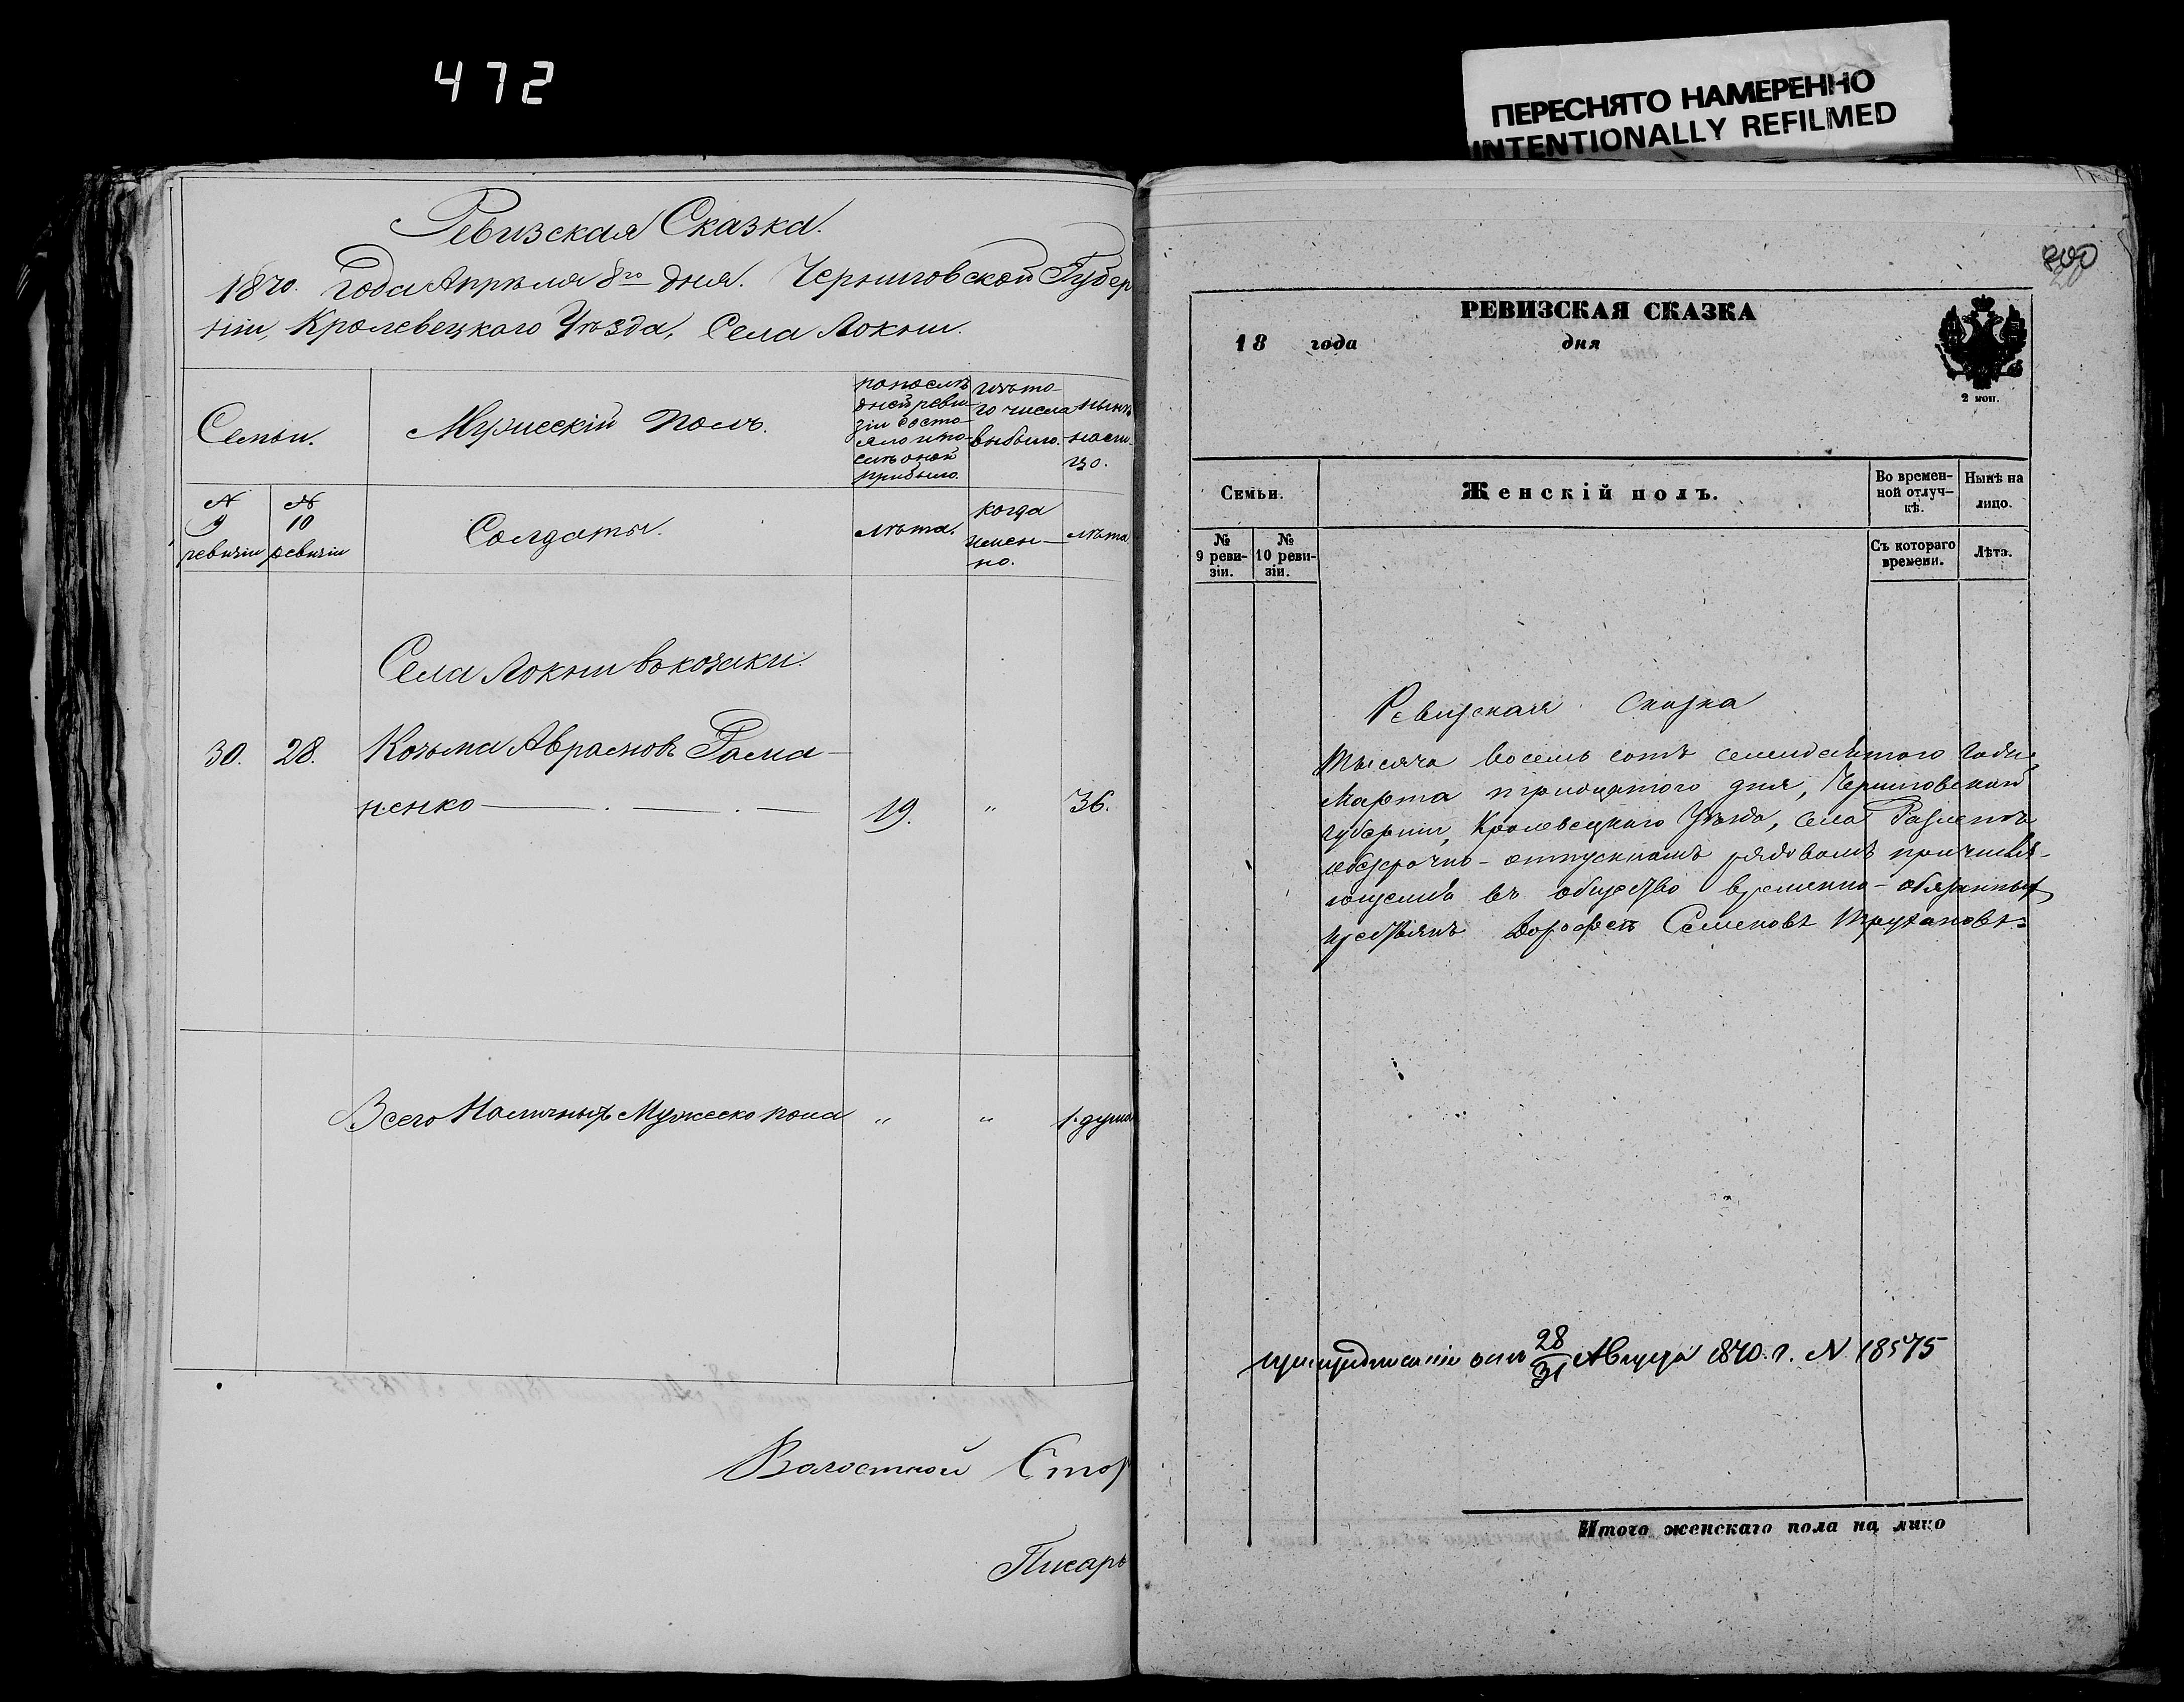 472
ПЕРЕСНЯТО НАМЕРЕННО
INTENTIONALLY REFILMED
Ревизская Сказка.
1870. Года Апрѣля 8го дня. Черниговской Губер
ніи, Кролевецкаго Уѣзда, Села Локни.
Семьи.
Мужескій полъ.
по послѣ
дней реви
зіи состо-
яло и по-
слѣ оной
прибыло.
Изъ то-
го числа
выбыло.
Нынѣ
на ли-
цо.
№ 9 ревизіи
№ 10 ревизіи
Солдаты.
лѣта.
когда
имен-
но.
лѣта
Села Локни въ козаки.
30. 28. Козьма Аврамовъ Рама-
ненко 19. " 36.
Всего Наличныхъ Мужеско пола " " 1. душа
Волостной Стар
Писарь
200
20
РЕВИЗСКАЯ СКАЗКА
18 года дня
2 коп.
Семьи.
Женскій полъ.
Во времен-
ной отлуч-
кѣ.
Нынѣ на
лицо.
№
9 реви-
зіи.
№
10 реви-
зіи.
Съ котораго
времени.
Лѣта.
Ревизская Сказка
тысяча восемь сотъ семидесятого года,
Марта тридцятого дня, Черниговской
губерніи, Кролевецкаго Уѣзда, села
безсрочно-отпускномъ рядовомъ причисля-
ющемся въ общество временно-обязанныхъ
крестьянъ Дорофей Семеновъ
отъ 28/31 Августа 1870. г. № 18575
Итого женскаго пола на лицо